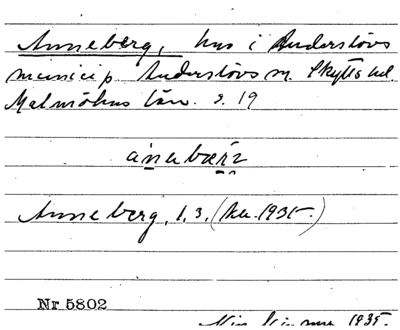 Anneberg, hus i Anderslövs
municip. Anderslövs sn. Skytts hd.
Malmöhus län. s. 19
anabærz
Anneberg, 1. 3. (Aa. 1935.)
Nr 5802
1935.